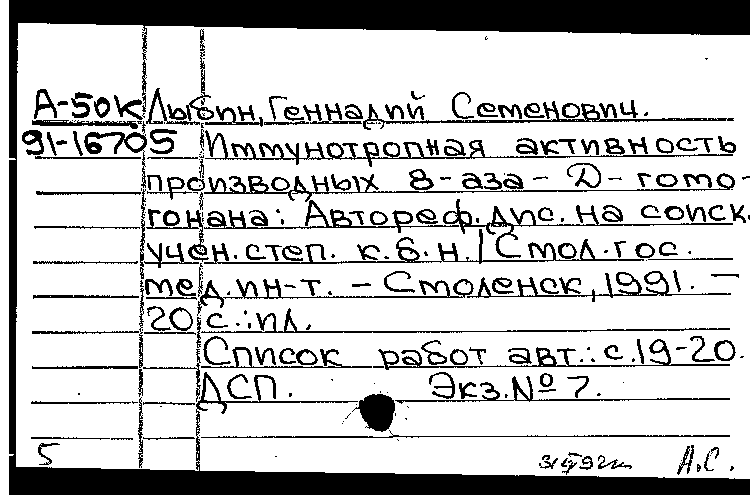 А-50к Лыбин, Геннадий Семенович.
91-16705 Иммунотропная активность
производных 8-аза-D-гомо-
гонана: Автореф. дис. на соиск.
учен. степ. к.б.н. / Смол. гос.
мед. ин-т. - Смоленск, 1991. -
20 с.: ил.
Список работ авт.: с. 19-20.
ДСП. Экз. № 7.
5 А.С.